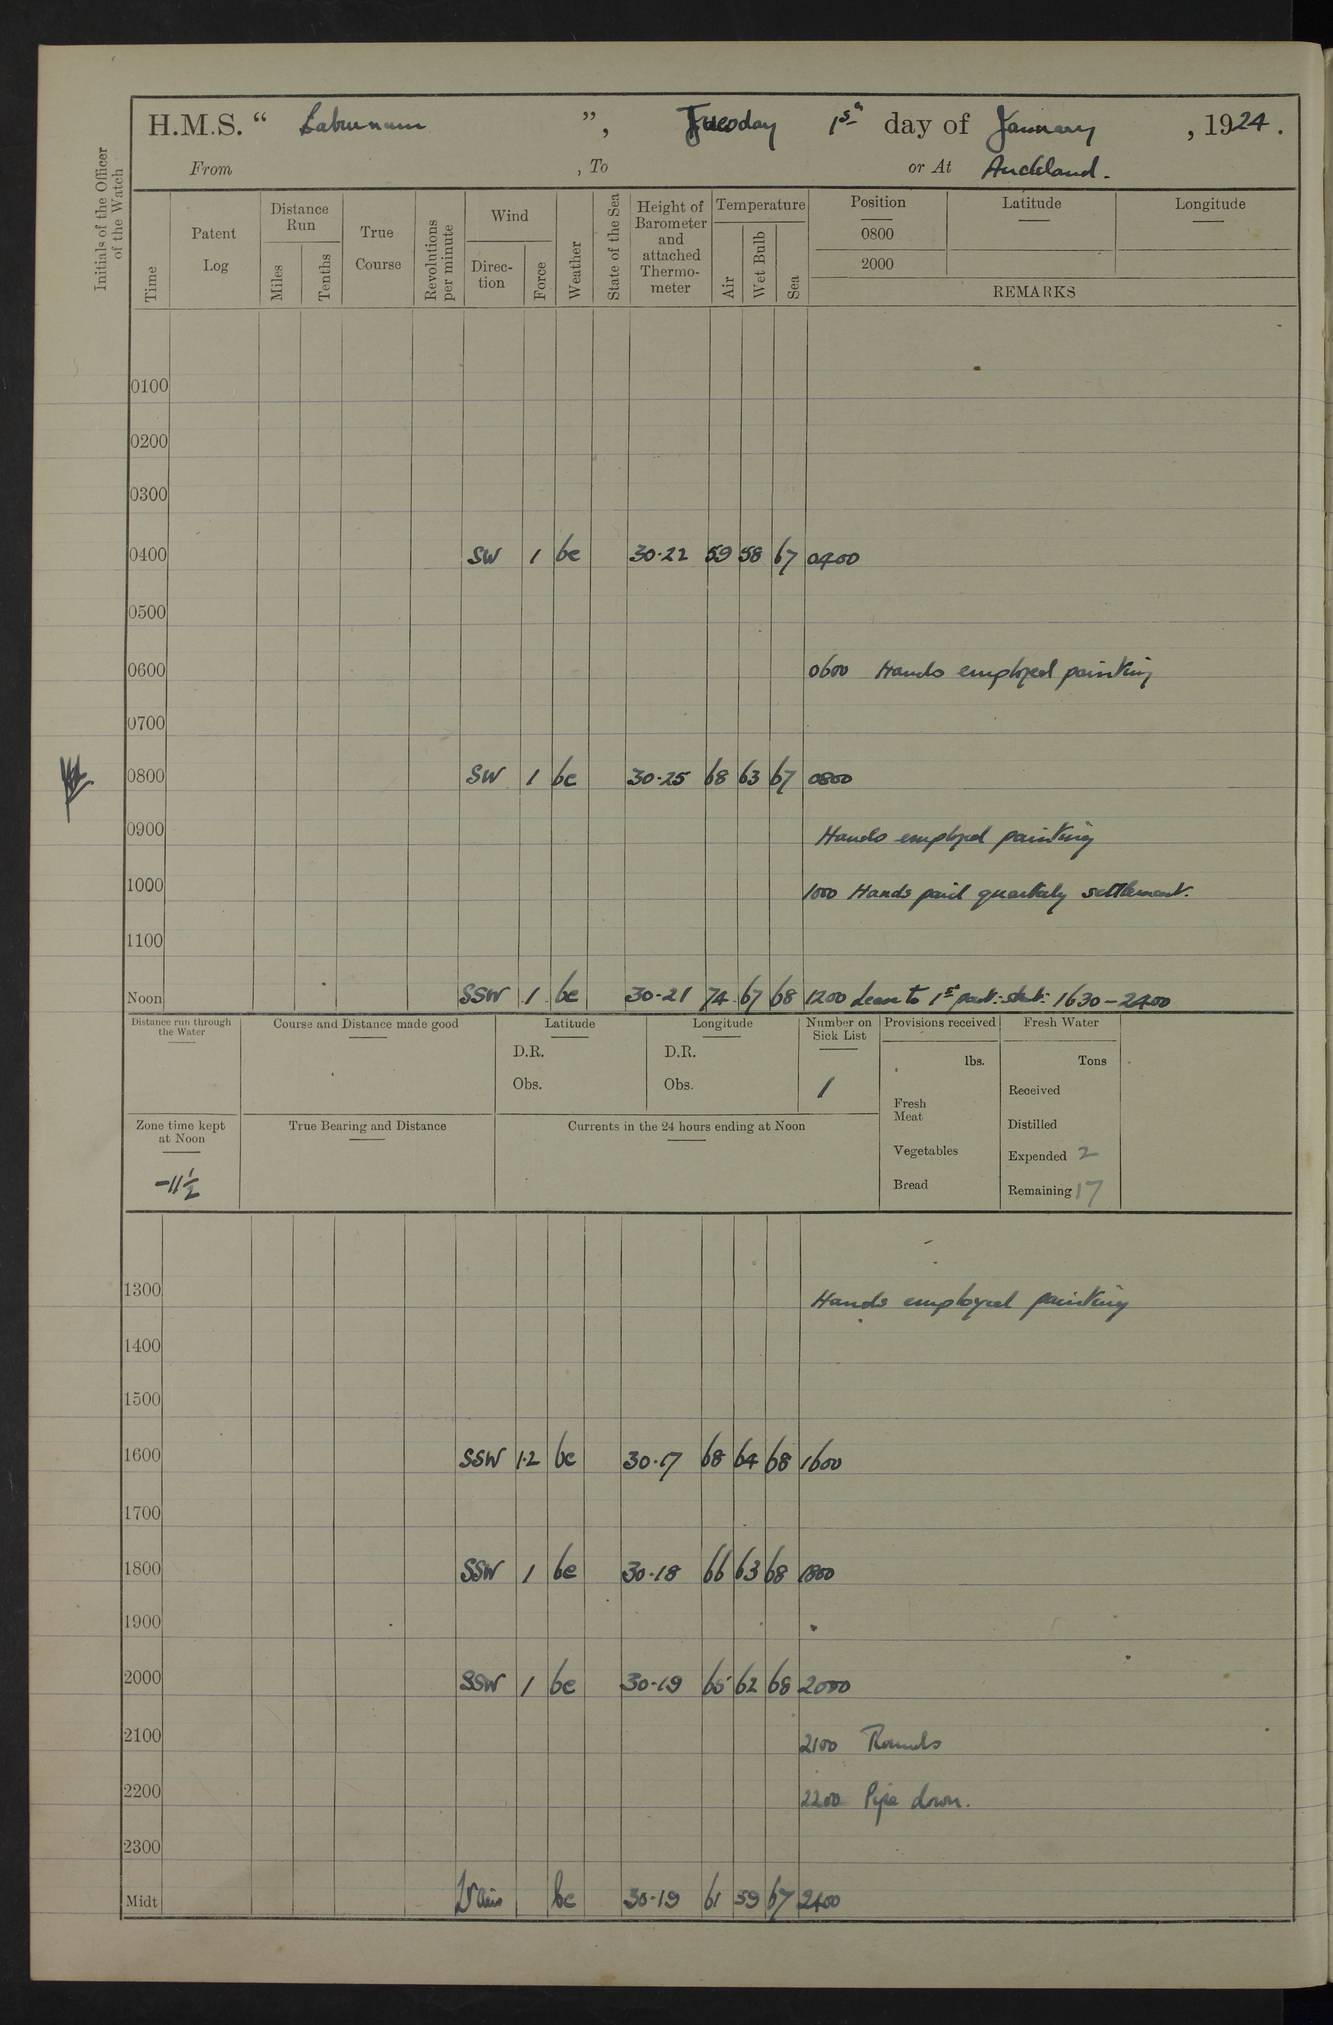 H.M.S. “ Laburnum ”, Tuesday 1st day of January, 1924.
From , To or At Auckland.
Initials of the Officer of the Watch
Time
Patent Log
Distance Run
Miles
Tenths
True Course
Revolutions per minute
Wind
Direc-tion
Force
Weather
State of the Sea
Height of Barometer and attached Thermo-meter
Temperature
Air
Wet Bulb
Sea
Position
0800
2000
Latitude
Longitude
REMARKS
0100
0200
0300
0400 SW 1 bc 30·22 59 58 67 0400
0500
0600 0600 Hands employed painting
0700
0800 SW 1 bc 30·25 68 63 67 0800
0900 Hands employed painting
1000 1000 Hands paid quarterly settlement.
1100
Noon SSW 1 bc 30·21 74 67 68 1200 Leave to 1st part: 1630 – 2400
Distance run through the Water
Course and Distance made good
Latitude
D.R.
Obs.
Longitude
D.R.
Obs.
Number on Sick List
1
Provisions received
lbs.
Fresh Meat
Vegetables
Bread
Fresh Water
Tons
Received
Distilled
Expended 2
Remaining 17
Zone time kept at Noon
-11½
True Bearing and Distance
Currents in the 24 hours ending at Noon
1300 Hands employed painting
1400
1500
1600 SSW 1·2 bc 30·17 68 64 68 1600
1700
1800 SSW 1 bc 30·18 66 63 68 1800
1900
2000 SSW 1 bc 30·19 65 62 68 2000
2100 2100 Rounds
2200 2200 Pipe down.
2300
Midt bc 30·19 61 59 67 2400